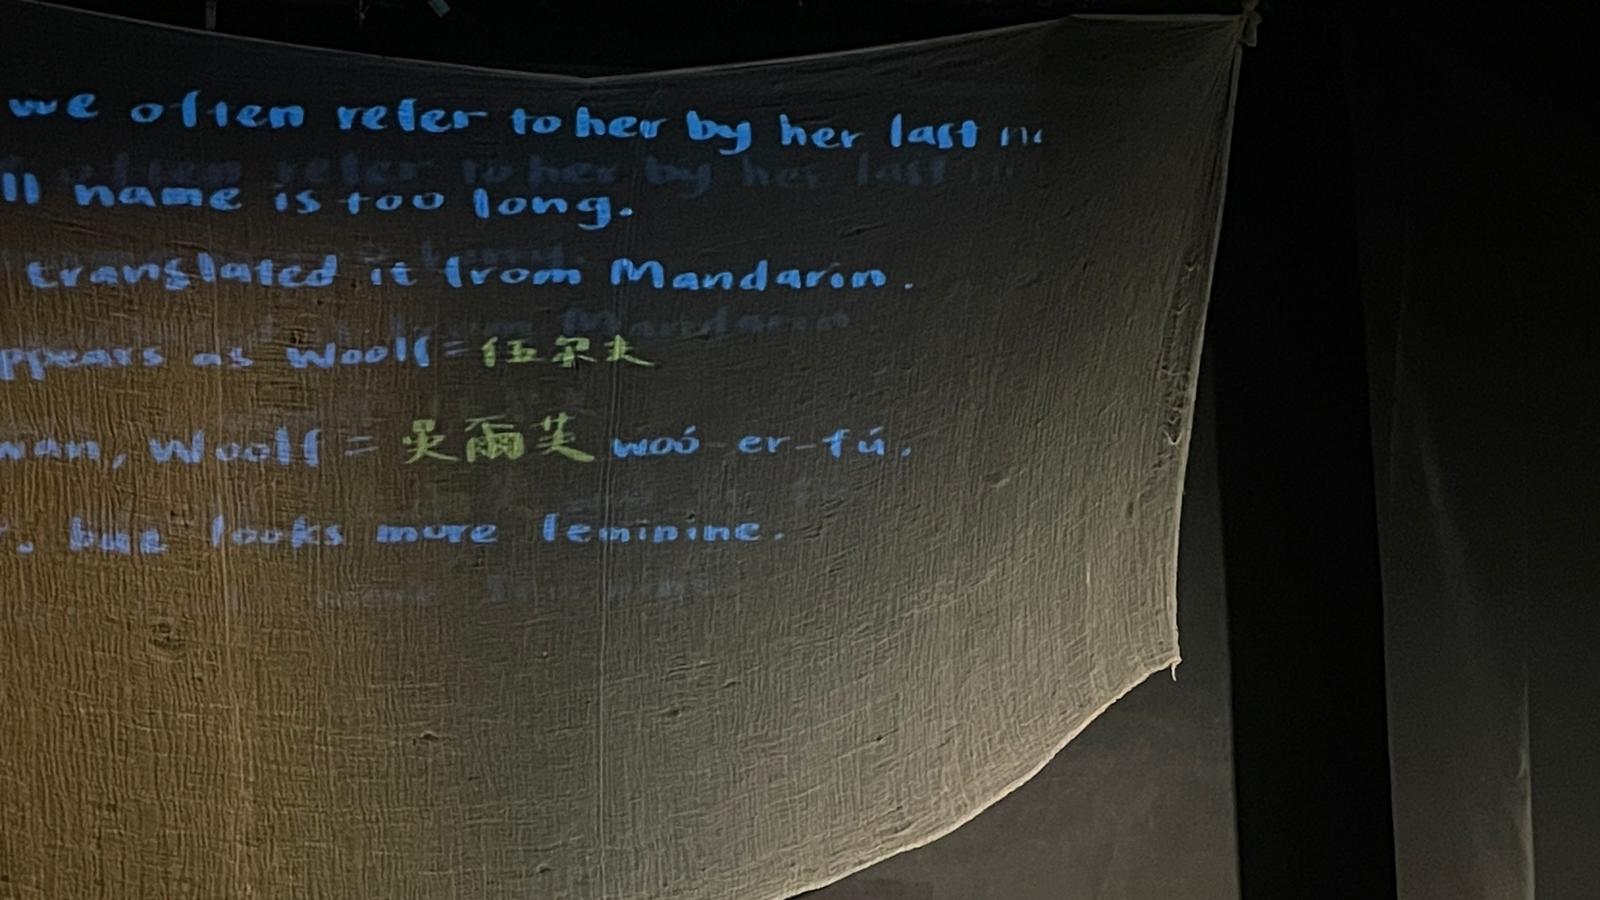 we often refer to her by her last
name is too long.
translated it from Mandarin.
as Woolf = 伍尔夫
Woolf = 吴爾芙 woó er-fú.
but looks more feminine.